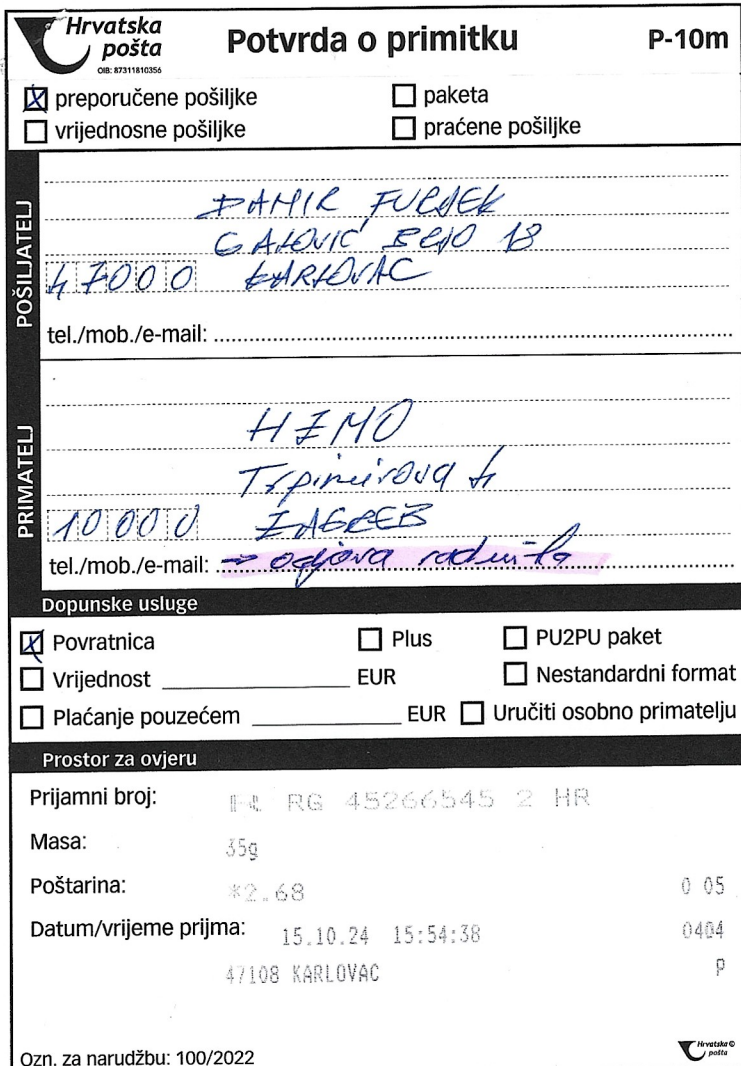 Hrvatska pošta
OIB: 87311810356
Potvrda o primitku
P-10m
preporučene pošiljke
paketa
vrijednosne pošiljke
praćene pošiljke
POŠILJATELJ
DAMIR FURJEK
GATOVIĆ BRDO 18
47000 KARLOVAC
tel./mob./e-mail:
PRIMATELJ
HZMO
Trpimirova 4
10000 ZAGREB
tel./mob./e-mail: → odjava
Dopunske usluge
Povratnica
Plus
PU2PU paket
Vrijednost EUR
Nestandardni format
Plaćanje pouzećem EUR
Uručiti osobno primatelju
Prostor za ovjeru
Prijamni broj: RG 45266545 2 HR
Masa: 35g
Poštarina: *2.68 0 05
Datum/vrijeme prijma: 15.10.24 15:54:38 0404
47108 KARLOVAC P
Ozn. za narudžbu: 100/2022
Hrvatska pošta